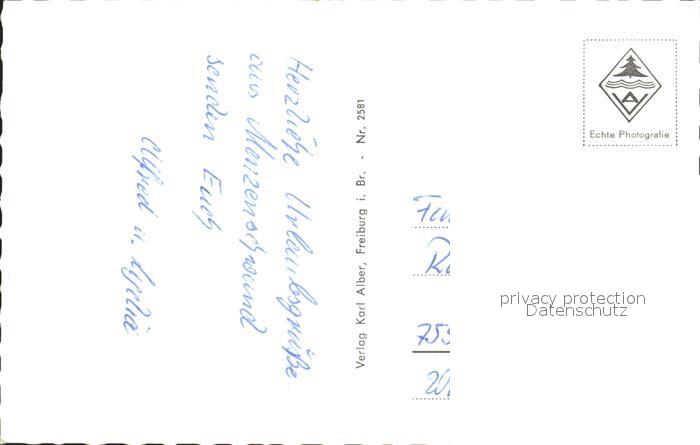 Herzliche Urlaubsgrüße
aus Menzenschwand
senden Euch
Alfred u. Lydia
Verlag Karl Alber, Freiburg i. Br. - Nr. 2581
Echte Photografie
privacy protection
Datenschutz